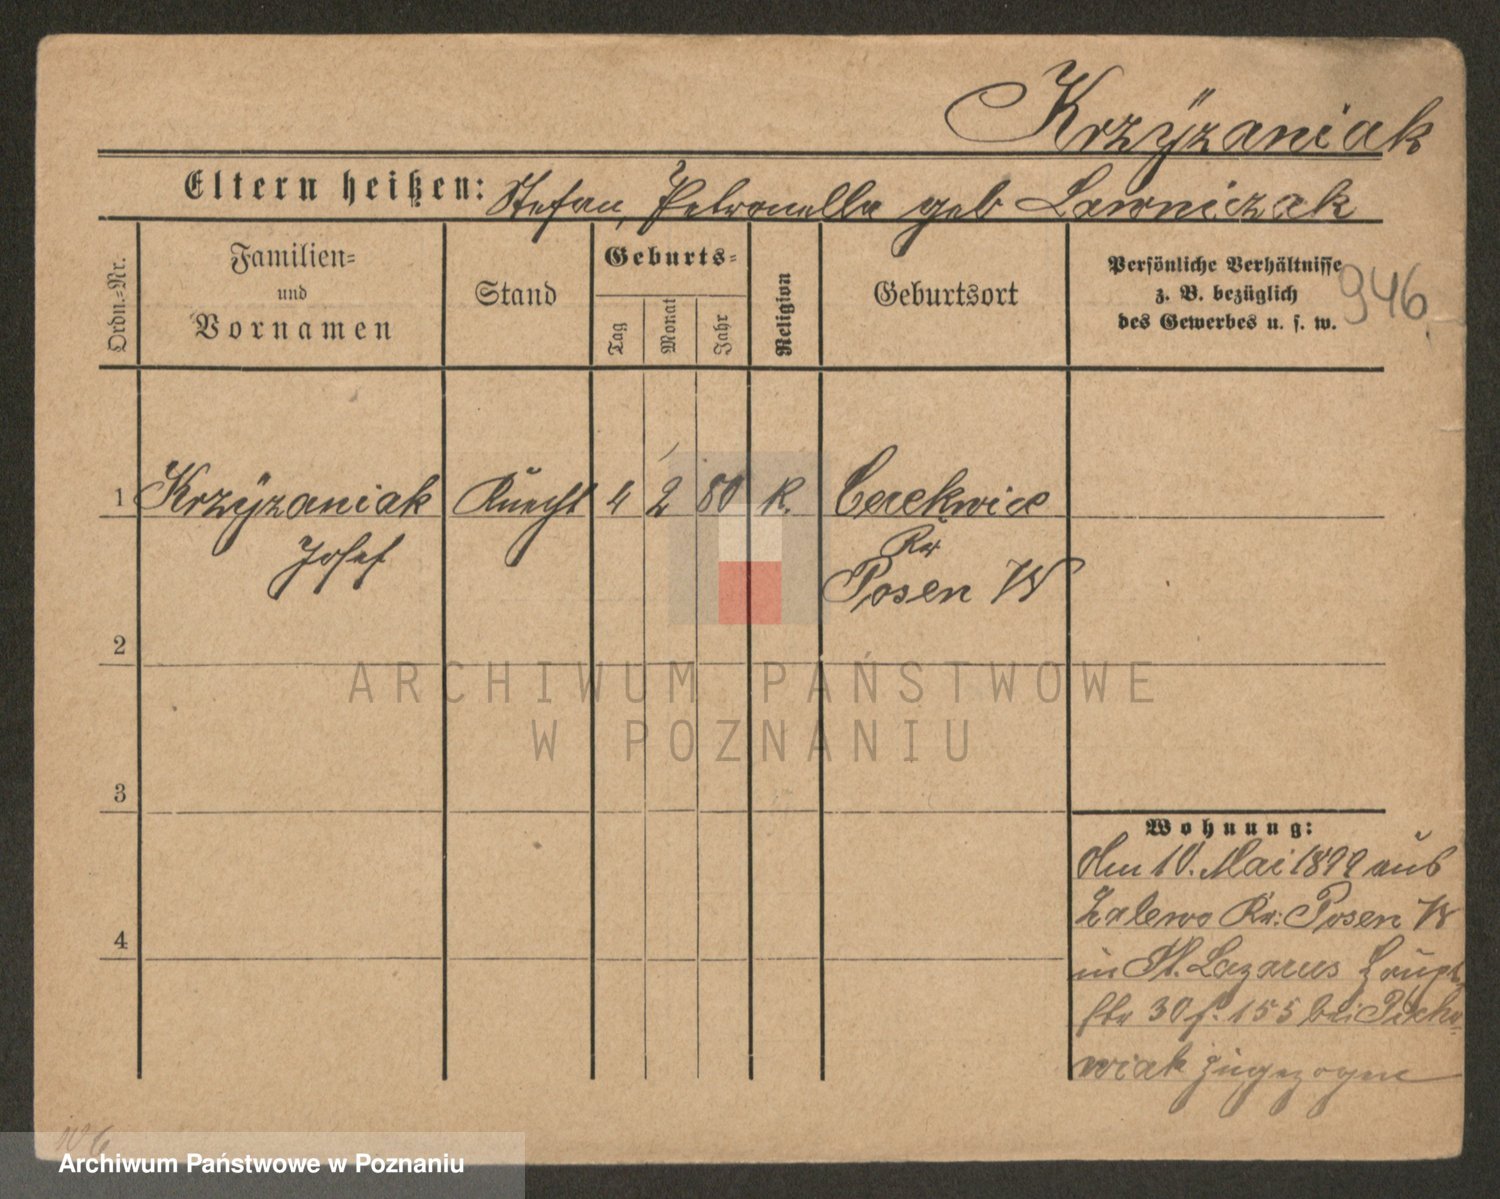 Krzÿzaniak
Eltern heißen: Stefan, Petronella geb Lawniczak
Ordn.=Nr.
Familien=
und
Vornamen
Stand
Geburts=
Tag
Monat
Jahr
Religion
Geburtsort
Persönliche Verhältnisse
z. B. bezüglich
des Gewerbes u. s. w.
946
1 Krzÿzaniak Knecht 4 2 80 K. Cerekwice
Josef
Kr
Posen W
2
3
4
Wohnung:
Am 10. Mai 1899 aus
Zalewo Kr: Posen W
in St. Lazarus Haupt
str 30 f. 155 bei
wiak zugezogen
ARCHIWUM PAŃSTWOWE
W POZNANIU
Archiwum Państwowe w Poznaniu